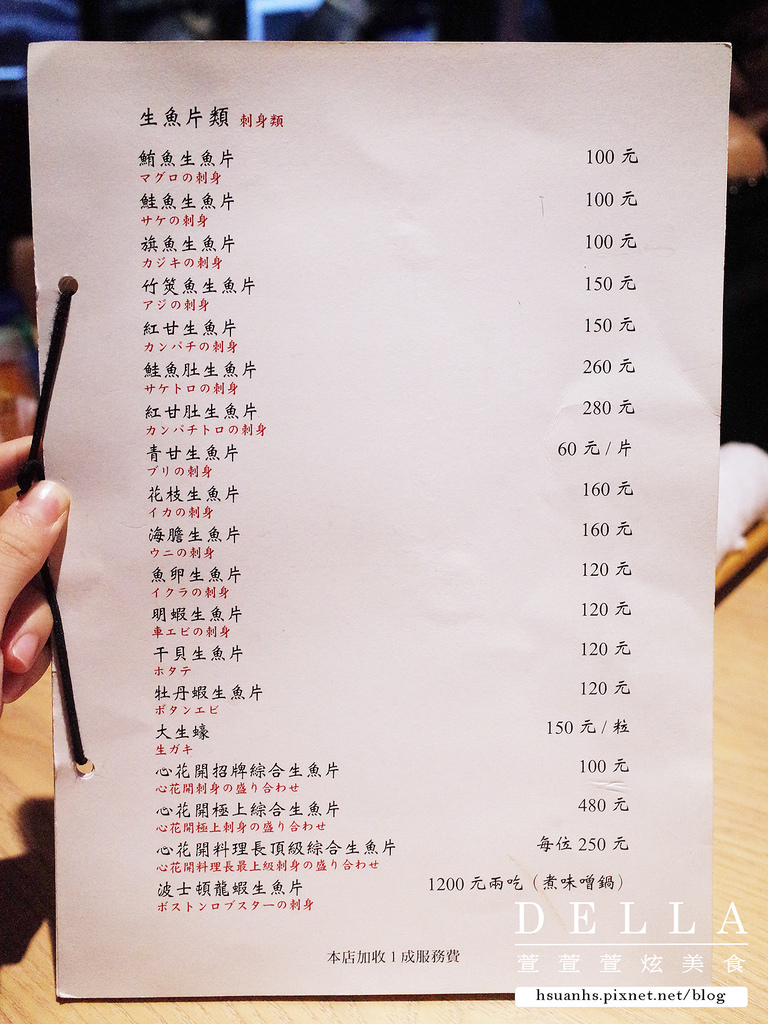 生魚片類 刺身類
鮪魚生魚片 100 元
マグロの刺身
鮭魚生魚片 100 元
サケの刺身
旗魚生魚片 100 元
カジキの刺身
竹筴魚生魚片 150 元
アジの刺身
紅甘生魚片 150 元
カンパチの刺身
鮭魚肚生魚片 260 元
サケトロの刺身
紅甘肚生魚片 280 元
カンパチトロの刺身
青甘生魚片 60 元 / 片
ブリの刺身
花枝生魚片 160 元
イカの刺身
海膽生魚片 160 元
ウニの刺身
魚卵生魚片 120 元
イクラの刺身
明蝦生魚片 120 元
車エビの刺身
干貝生魚片 120 元
ホタテ
牡丹蝦生魚片 120 元
ボタンエビ
大生蠔 150 元 / 粒
生ガキ
心花開招牌綜合生魚片 100 元
心花開刺身の盛り合わせ
心花開極上綜合生魚片 480 元
心花開極上刺身の盛り合わせ
心花開料理長頂級綜合生魚片 每位 250 元
心花開料理長最上級刺身の盛り合わせ
波士頓龍蝦生魚片 1200 元兩吃（煮味噌鍋）
ボストンロブスターの刺身
本店加收 1 成服務費
DELLA
萱萱萱炫美食
hsuanhs.pixnet.net/blog